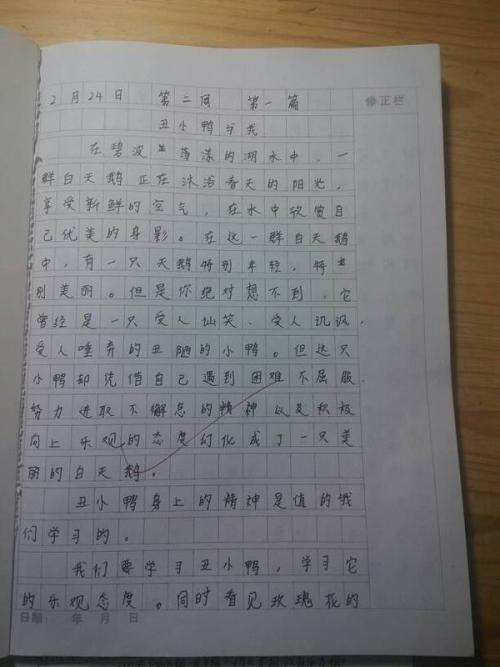 2月24日 第二周 第一篇 修正栏
丑小鸭与我
在碧波荡漾的湖水中，一
群白天鹅正在沐浴春天的阳光，
享受新鲜的空气，在水中欣赏自
己优美的身影。在这一群白天鹅
中，有一只天鹅特别年轻，特
别美丽。但是你绝对想不到，它
曾经是一只受人讪笑、受人讥讽、
受人唾弃的丑陋的小鸭。但这只
小鸭却凭借自己遇到困难不屈服，
努力进取不懈怠的精神以及积极
向上乐观的态度幻化成了一只美
丽的白天鹅。
丑小鸭身上的精神是值的我
们学习的。
我们要学习丑小鸭，学习它
的乐观态度。同时看见玫瑰花的
日期： 年 月 日